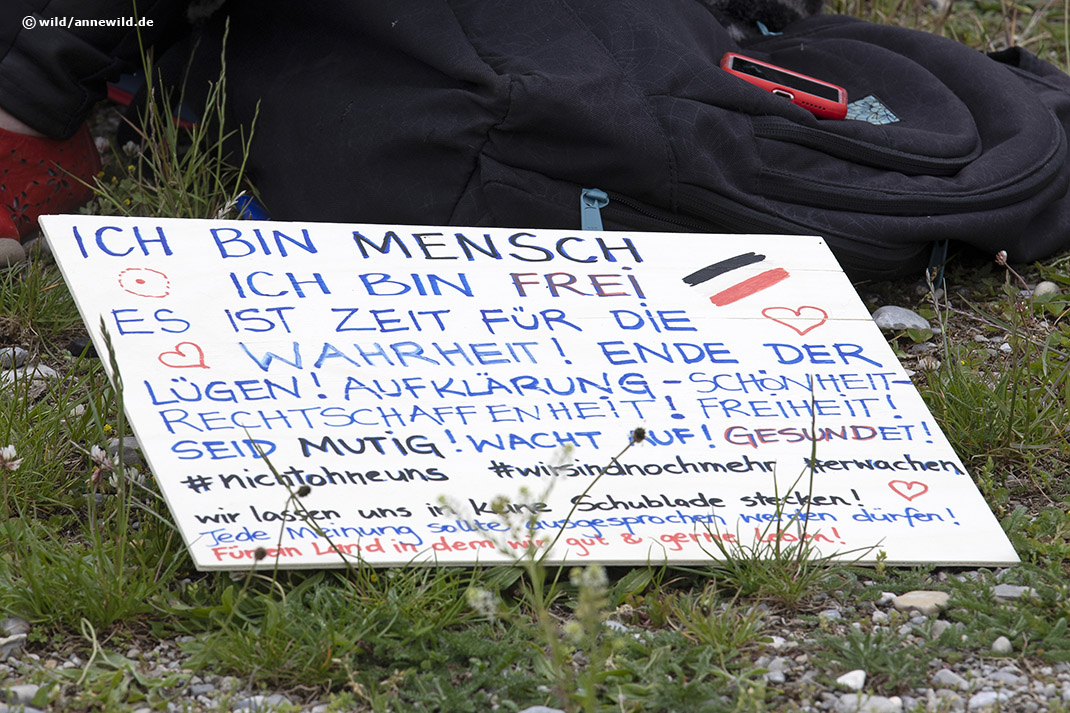 © wild/annewild.de
ICH BIN MENSCH
ICH BIN FREI
ES IST ZEIT FÜR DIE
WAHRHEIT! ENDE DER
LÜGEN! AUFKLÄRUNG - SCHÖNHEIT -
RECHTSCHAFFENHEIT! FREIHEIT!
SEID MUTIG! WACHT AUF! GESUNDET!
#nichtohneuns #wirsindnochmehr #erwachen
wir lassen uns in keine Schublade stecken!
Jede Meinung sollte ausgesprochen werden dürfen!
Für ein Land in dem wir gut & gerne leben!